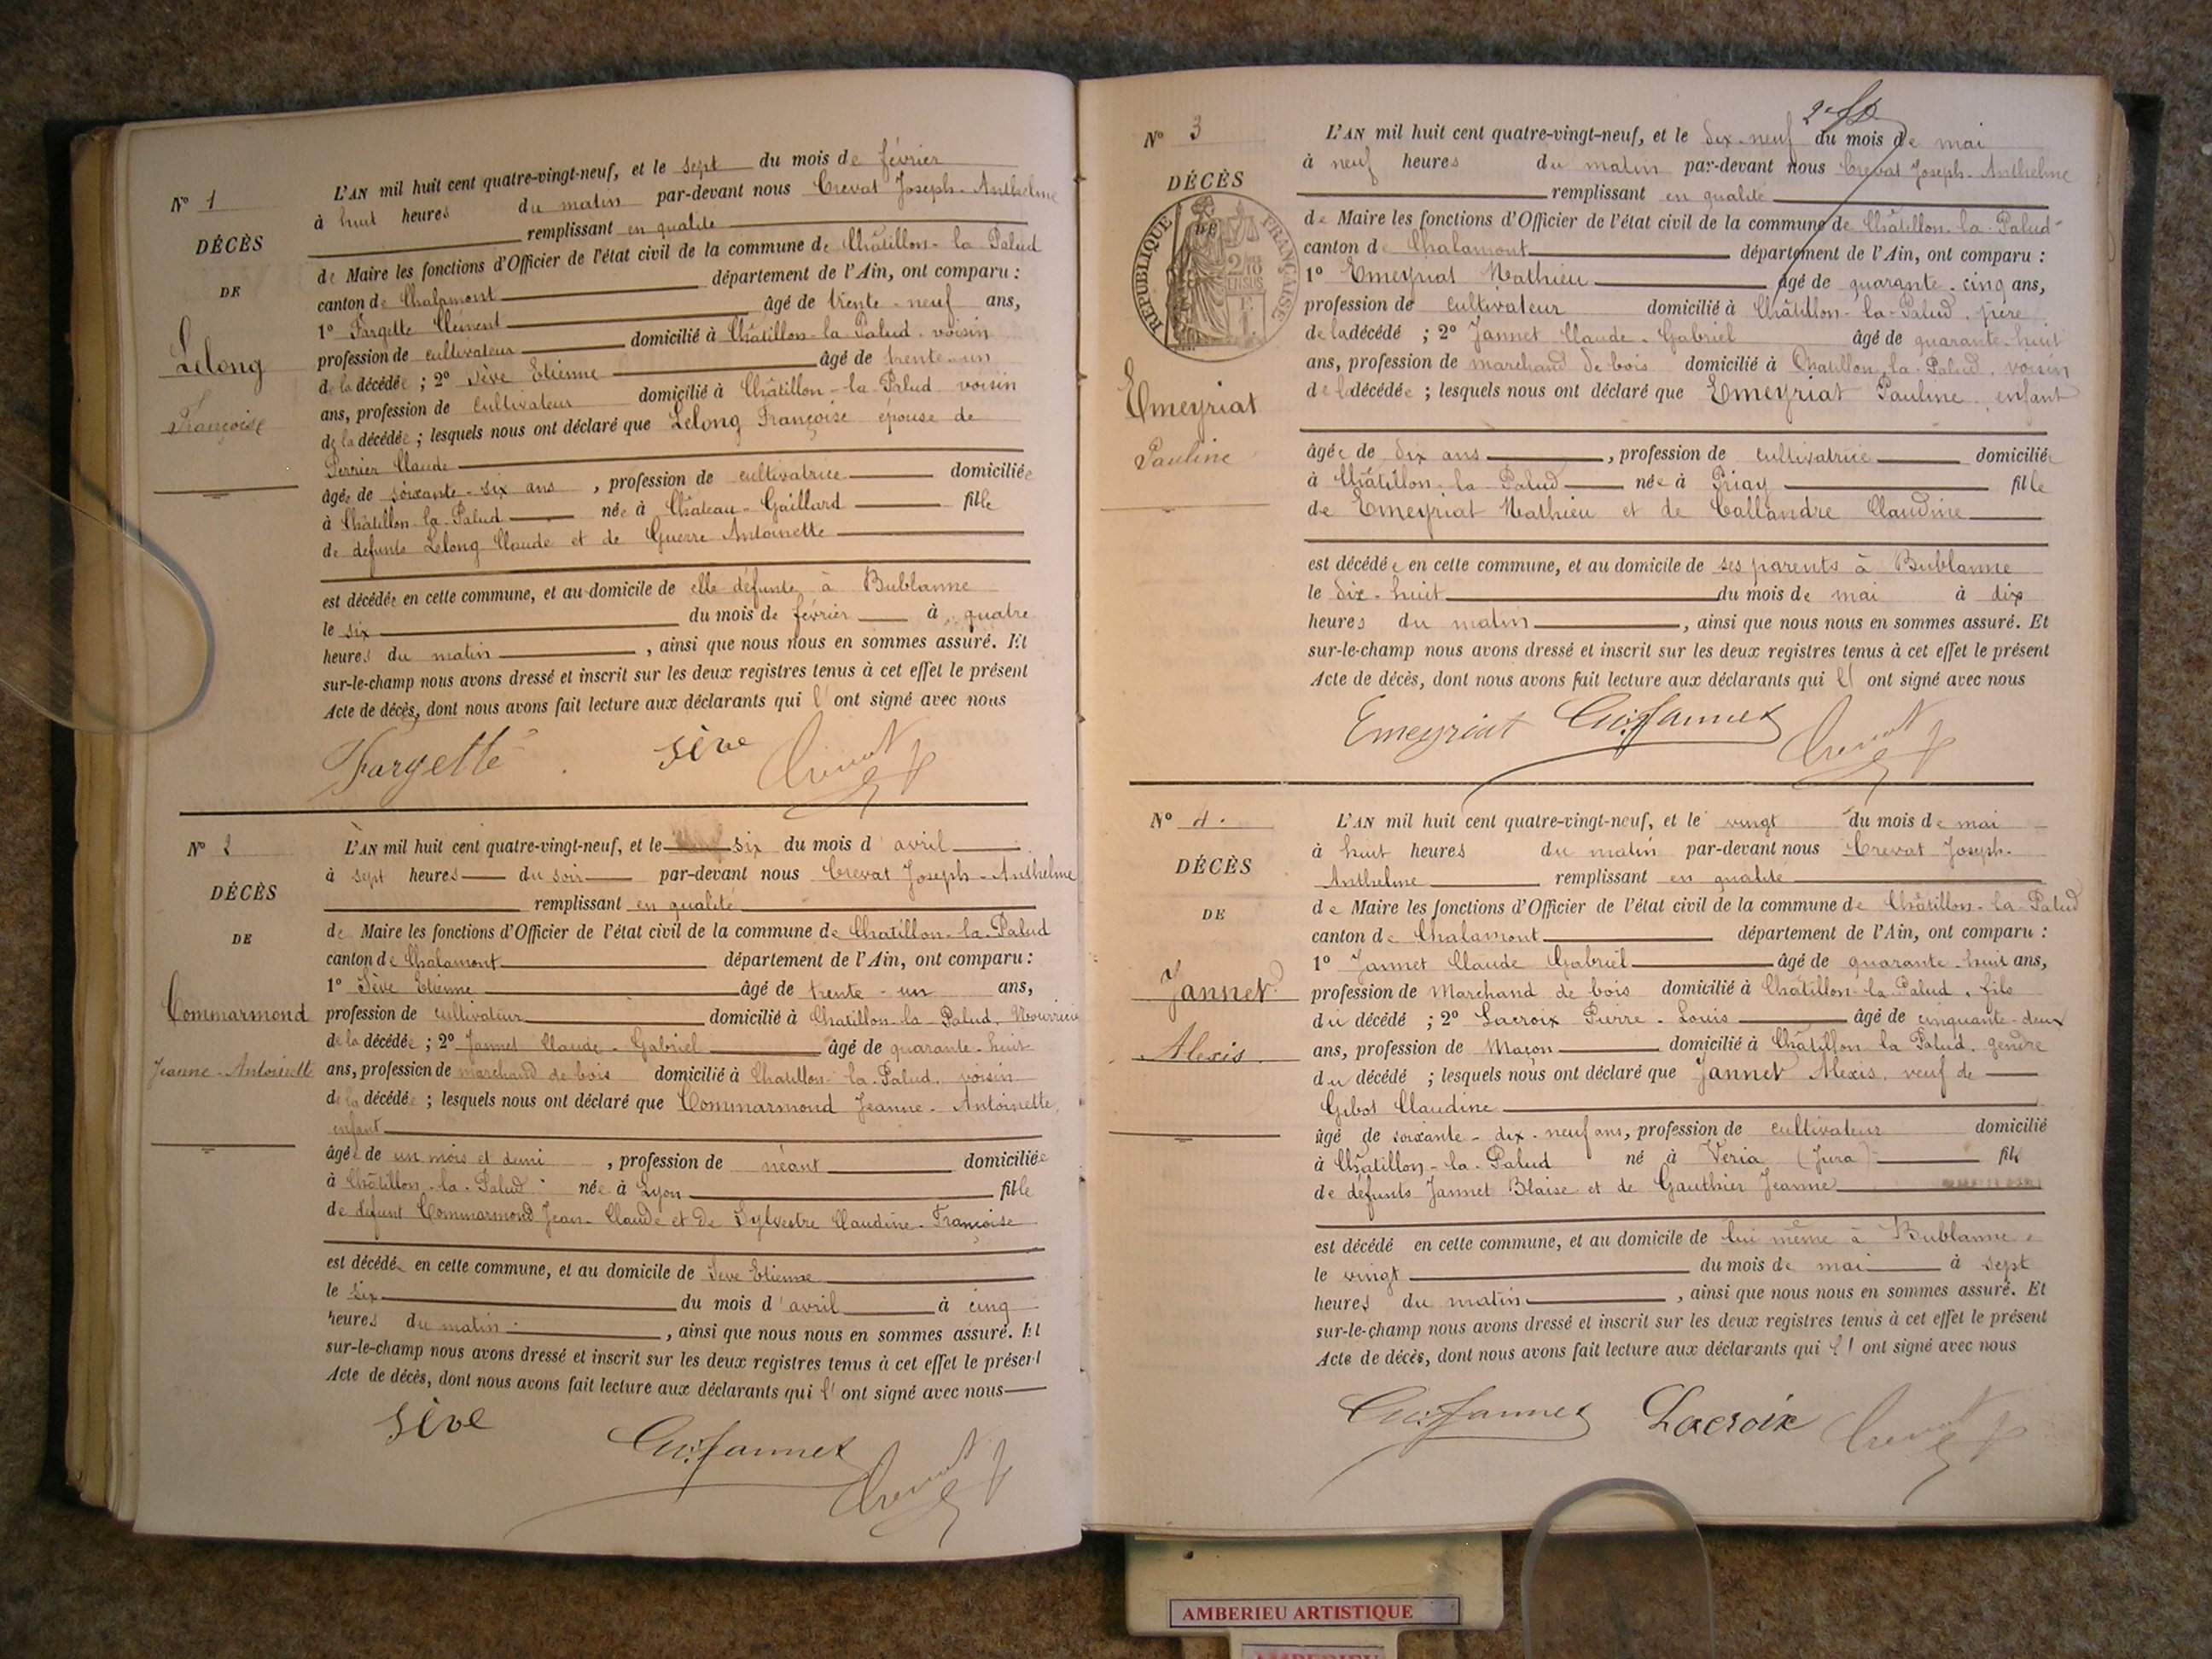 N° 1
DÉCÈS
DE
Lelong
Françoise
L'AN mil huit cent quatre-vingt-neuf, et le sept du mois de février
à huit heures du matin par-devant nous Crevat Joseph-Anthelme
remplissant en qualité
de Maire les fonctions d'Officier de l'état civil de la commune de Châtillon-la-Palud
canton de Chalamont département de l'Ain, ont comparu :
1° Fargette Clément âgé de trente-neuf ans,
profession de cultivateur domicilié à Châtillon-la-Palud, voisin
de la décédée ; 2° Sève Etienne âgé de trente-un
ans, profession de cultivateur domicilié à Châtillon-la-Palud voisin
de la décédée ; lesquels nous ont déclaré que Lelong Françoise épouse de
Perrier Claude
âgée de soixante-six ans , profession de cultivatrice domiciliée
à Châtillon-la-Palud née à Château-Gaillard fille
de défunts Lelong Claude et de Guerre Antoinette
est décédée en cette commune, et au domicile de elle défunte à Bublanne
le six du mois de février à quatre
heures du matin , ainsi que nous nous en sommes assuré. Et
sur-le-champ nous avons dressé et inscrit sur les deux registres tenus à cet effet le présent
Acte de décès, dont nous avons fait lecture aux déclarants qui l'ont signé avec nous
Fargette sève Crevat
N° 2
DÉCÈS
DE
Commarmond
Jeanne-Antoinette
L'AN mil huit cent quatre-vingt-neuf, et le six du mois d'avril
à sept heures du soir par-devant nous Crevat Joseph-Anthelme
remplissant en qualité
de Maire les fonctions d'Officier de l'état civil de la commune de Chatillon-la-Palud
canton de Chalamont département de l'Ain, ont comparu :
1° Sève Etienne âgé de trente-un ans,
profession de cultivateur domicilié à Chatillon-la-Palud. Nourricier
de la décédée ; 2° Jannet Claude-Gabriel âgé de quarante-huit
ans, profession de marchand de bois domicilié à Chatillon-la-Palud, voisin
de la décédée ; lesquels nous ont déclaré que Commarmond Jeanne-Antoinette,
enfant
âgée de un mois et demi , profession de néant domiciliée
à Châtillon-la-Palud née à Lyon fille
de défunt Commarmond Jean-Claude et De Sylvestre Claudine-Françoise
est décédée en cette commune, et au domicile de Sève Etienne
le six du mois d'avril à cinq
heures du matin , ainsi que nous nous en sommes assuré. Et
sur-le-champ nous avons dressé et inscrit sur les deux registres tenus à cet effet le présent
Acte de décès, dont nous avons fait lecture aux déclarants qui l'ont signé avec nous
sève Jannet Crevat
N° 3
DÉCÈS
RÉPUBLIQUE FRANÇAISE
Emeyriat
Pauline
L'AN mil huit cent quatre-vingt-neuf, et le dix-neuf du mois de mai
à neuf heures du matin par-devant nous Crevat Joseph-Anthelme
remplissant en qualité
de Maire les fonctions d'Officier de l'état civil de la commune de Châtillon-la-Palud
canton de Chalamont département de l'Ain, ont comparu :
1° Emeyriat Mathieu âgé de quarante-cinq ans,
profession de cultivateur domicilié à Châtillon-la-Palud, père
de la décédé ; 2° Jannet Claude-Gabriel âgé de quarante-huit
ans, profession de marchand de bois domicilié à Chatillon-la-Palud, voisin
de la décédée ; lesquels nous ont déclaré que Emeyriat Pauline, enfant
âgée de dix ans , profession de cultivatrice domiciliée
à Châtillon-la-Palud née à Priay fille
de Emeyriat Mathieu et de Callandre Claudine
est décédée en cette commune, et au domicile de ses parents à Bublanne
le dix-huit du mois de mai à dix
heures du matin , ainsi que nous nous en sommes assuré. Et
sur-le-champ nous avons dressé et inscrit sur les deux registres tenus à cet effet le présent
Acte de décès, dont nous avons fait lecture aux déclarants qui l'ont signé avec nous
Emeyriat Jannet Crevat
N° 4.
DÉCÈS
DE
Jannet
Alexis
L'AN mil huit cent quatre-vingt-neuf, et le vingt du mois de mai
à huit heures du matin par-devant nous Crevat Joseph-
Anthelme remplissant en qualité
de Maire les fonctions d'Officier de l'état civil de la commune de Châtillon-la-Palud
canton de Chalamont département de l'Ain, ont comparu :
1° Jannet Claude Gabriel âgé de quarante-huit ans,
profession de Marchand de bois domicilié à Châtillon-la-Palud, fils
du décédé ; 2° Lacroix Pierre-Louis âgé de cinquante-deux
ans, profession de Maçon domicilié à Châtillon la Palud, gendre
du décédé ; lesquels nous ont déclaré que Jannet Alexis, veuf de
Gibot Claudine
âgé de soixante-dix-neuf ans, profession de cultivateur domicilié
à Châtillon-la-Palud né à Véria (Jura) fils
de défunts Jannet Blaise et de Gauthier Jeanne
est décédé en cette commune, et au domicile de lui même à Bublanne,
le vingt du mois de mai à sept
heures du matin , ainsi que nous nous en sommes assuré. Et
sur-le-champ nous avons dressé et inscrit sur les deux registres tenus à cet effet le présent
Acte de décès, dont nous avons fait lecture aux déclarants qui l'ont signé avec nous
Jannet Lacroix Crevat
AMBERIEU ARTISTIQUE
AMBERIEU